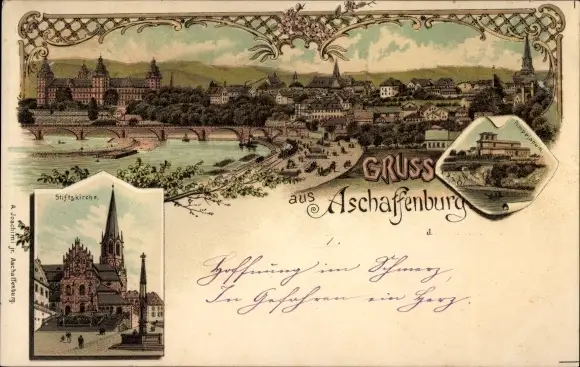 GRUSS
aus Aschaffenburg
Stiftskirche.
A. Joachim jr. Aschaffenburg.
d.
1.
Hoffnung im Schmerz,
In Gefahren ein Herz.